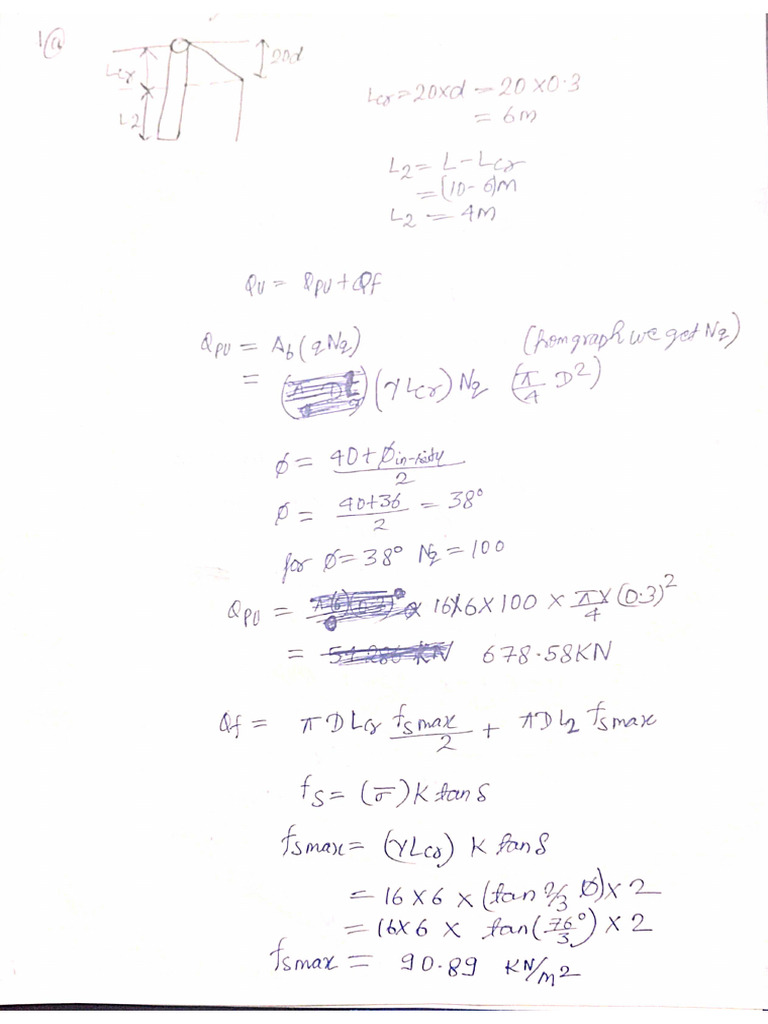 1(a)
Lcr
20d
L2
Lcr = 20×d = 20×0.3
= 6m
L2 = L - Lcr
= (10-6)m
L2 = 4m
Qu = Qpu + Qf
Qpu = Ab(qNq) (from graph we get Nq)
= (γLcr) Nq (π/4 D²)
ø = (40+øin-situ)/2
ø = (40+36)/2 = 38°
for ø = 38° Nq = 100
Qpu = 16×6×100 × π/4 × (0.3)²
= 678.58KN
Qf = πDLcr fsmax/2 + πDL2 fsmax
fs = (σ̅) K tan δ
fsmax = (γLcr) K tan δ
= 16×6 × (tan 2/3 ø) × 2
= 16×6 × tan(76°/3) × 2
fsmax = 90.89 KN/m2